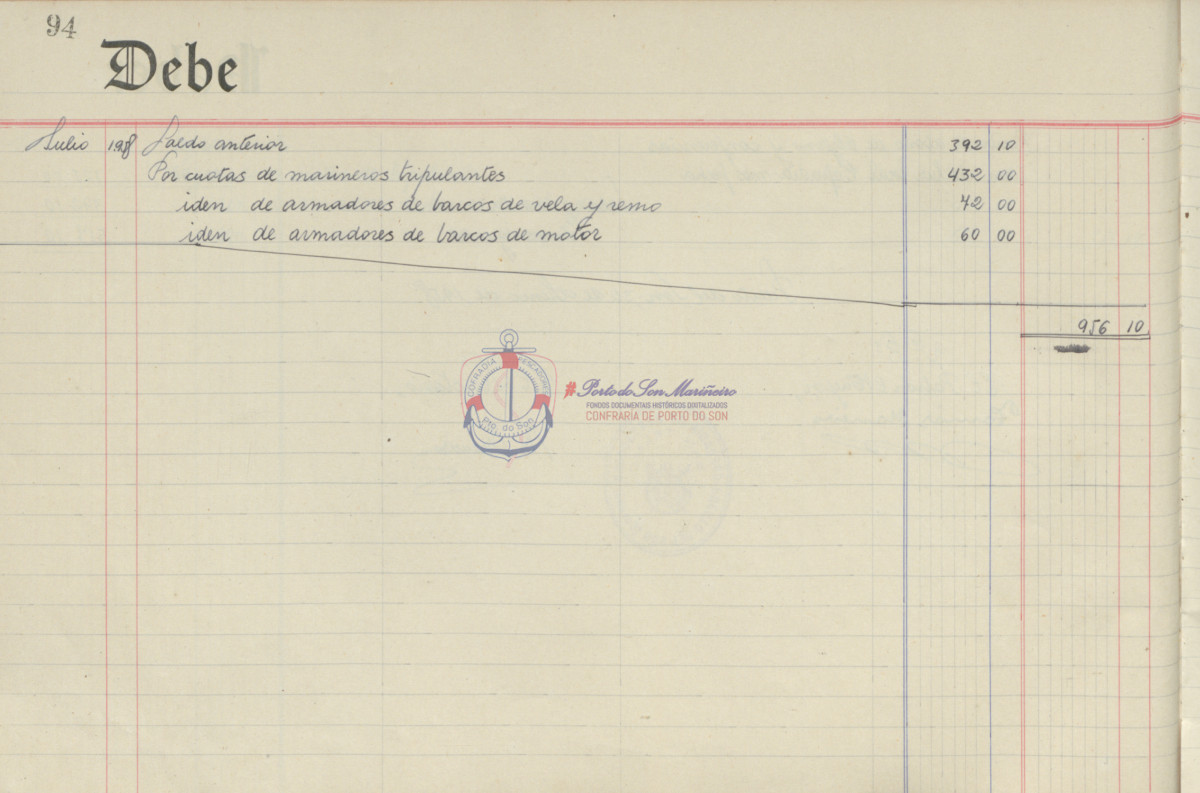 94
Debe
Julio Saldo anterior 392 10
Por cuotas de marineros tripulantes 432 00
iden de armadores de barcos de vela y remo 42 00
iden de armadores de barcos de motor 60 00
956 10
COFRADIA PESCADORES
Pto. do Son
#Porto do Son Mariñeiro
FONDOS DOCUMENTAIS HISTÓRICOS DIXITALIZADOS
CONFRARÍA DE PORTO DO SON